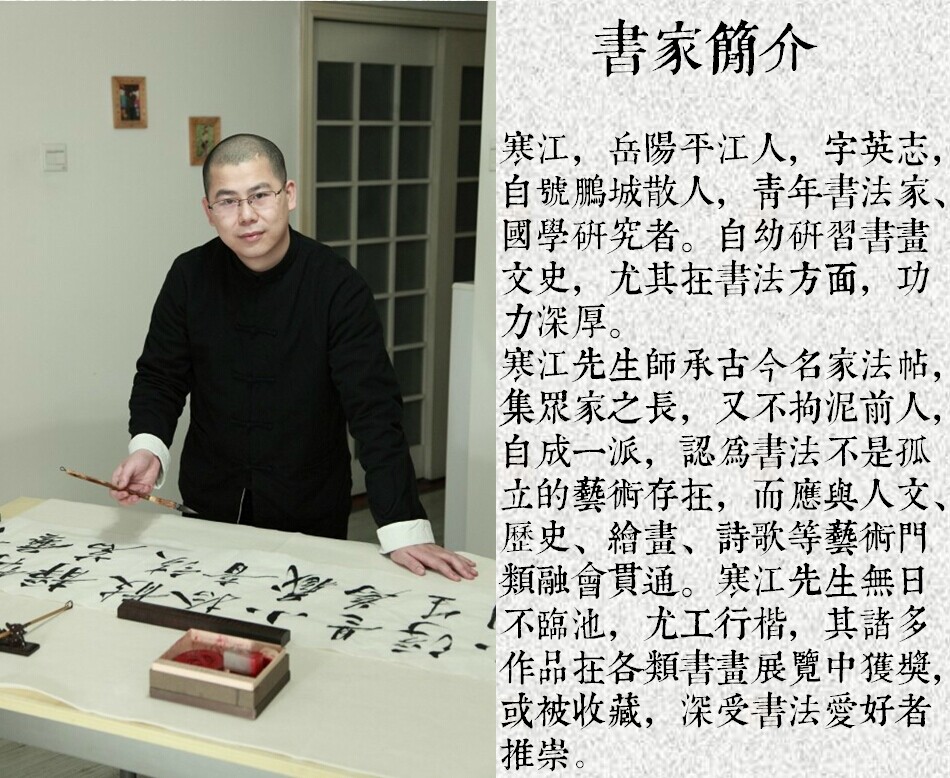 書家簡介
寒江，岳陽平江人，字英志，
自號鵬城散人，青年書法家、
國學研究者。自幼研習書畫
文史，尤其在書法方面，功
力深厚。
寒江先生師承古今名家法帖，
集眾家之長，又不拘泥前人，
自成一派，認爲書法不是孤
立的藝術存在，而應與人文、
歷史、繪畫、詩歌等藝術門
類融會貫通。寒江先生無日
不臨池，尤工行楷，其諸多
作品在各類書畫展覽中獲獎，
或被收藏，深受書法愛好者
推崇。